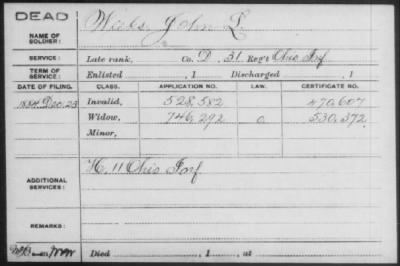 DEAD
NAME OF SOLDIER: John L.
SERVICE: Late rank, Co. D. 31 Reg't Ohio Inf.
TERM OF SERVICE: Enlisted , 1 Discharged , 1
DATE OF FILING. CLASS. APPLICATION NO. LAW. CERTIFICATE NO.
1884 Dec. 23 Invalid, 528,582 470,607
Widow, 746,292 530,372
Minor,
ADDITIONAL SERVICES: H. 11 Ohio Inf.
REMARKS:
Died , 1 , at